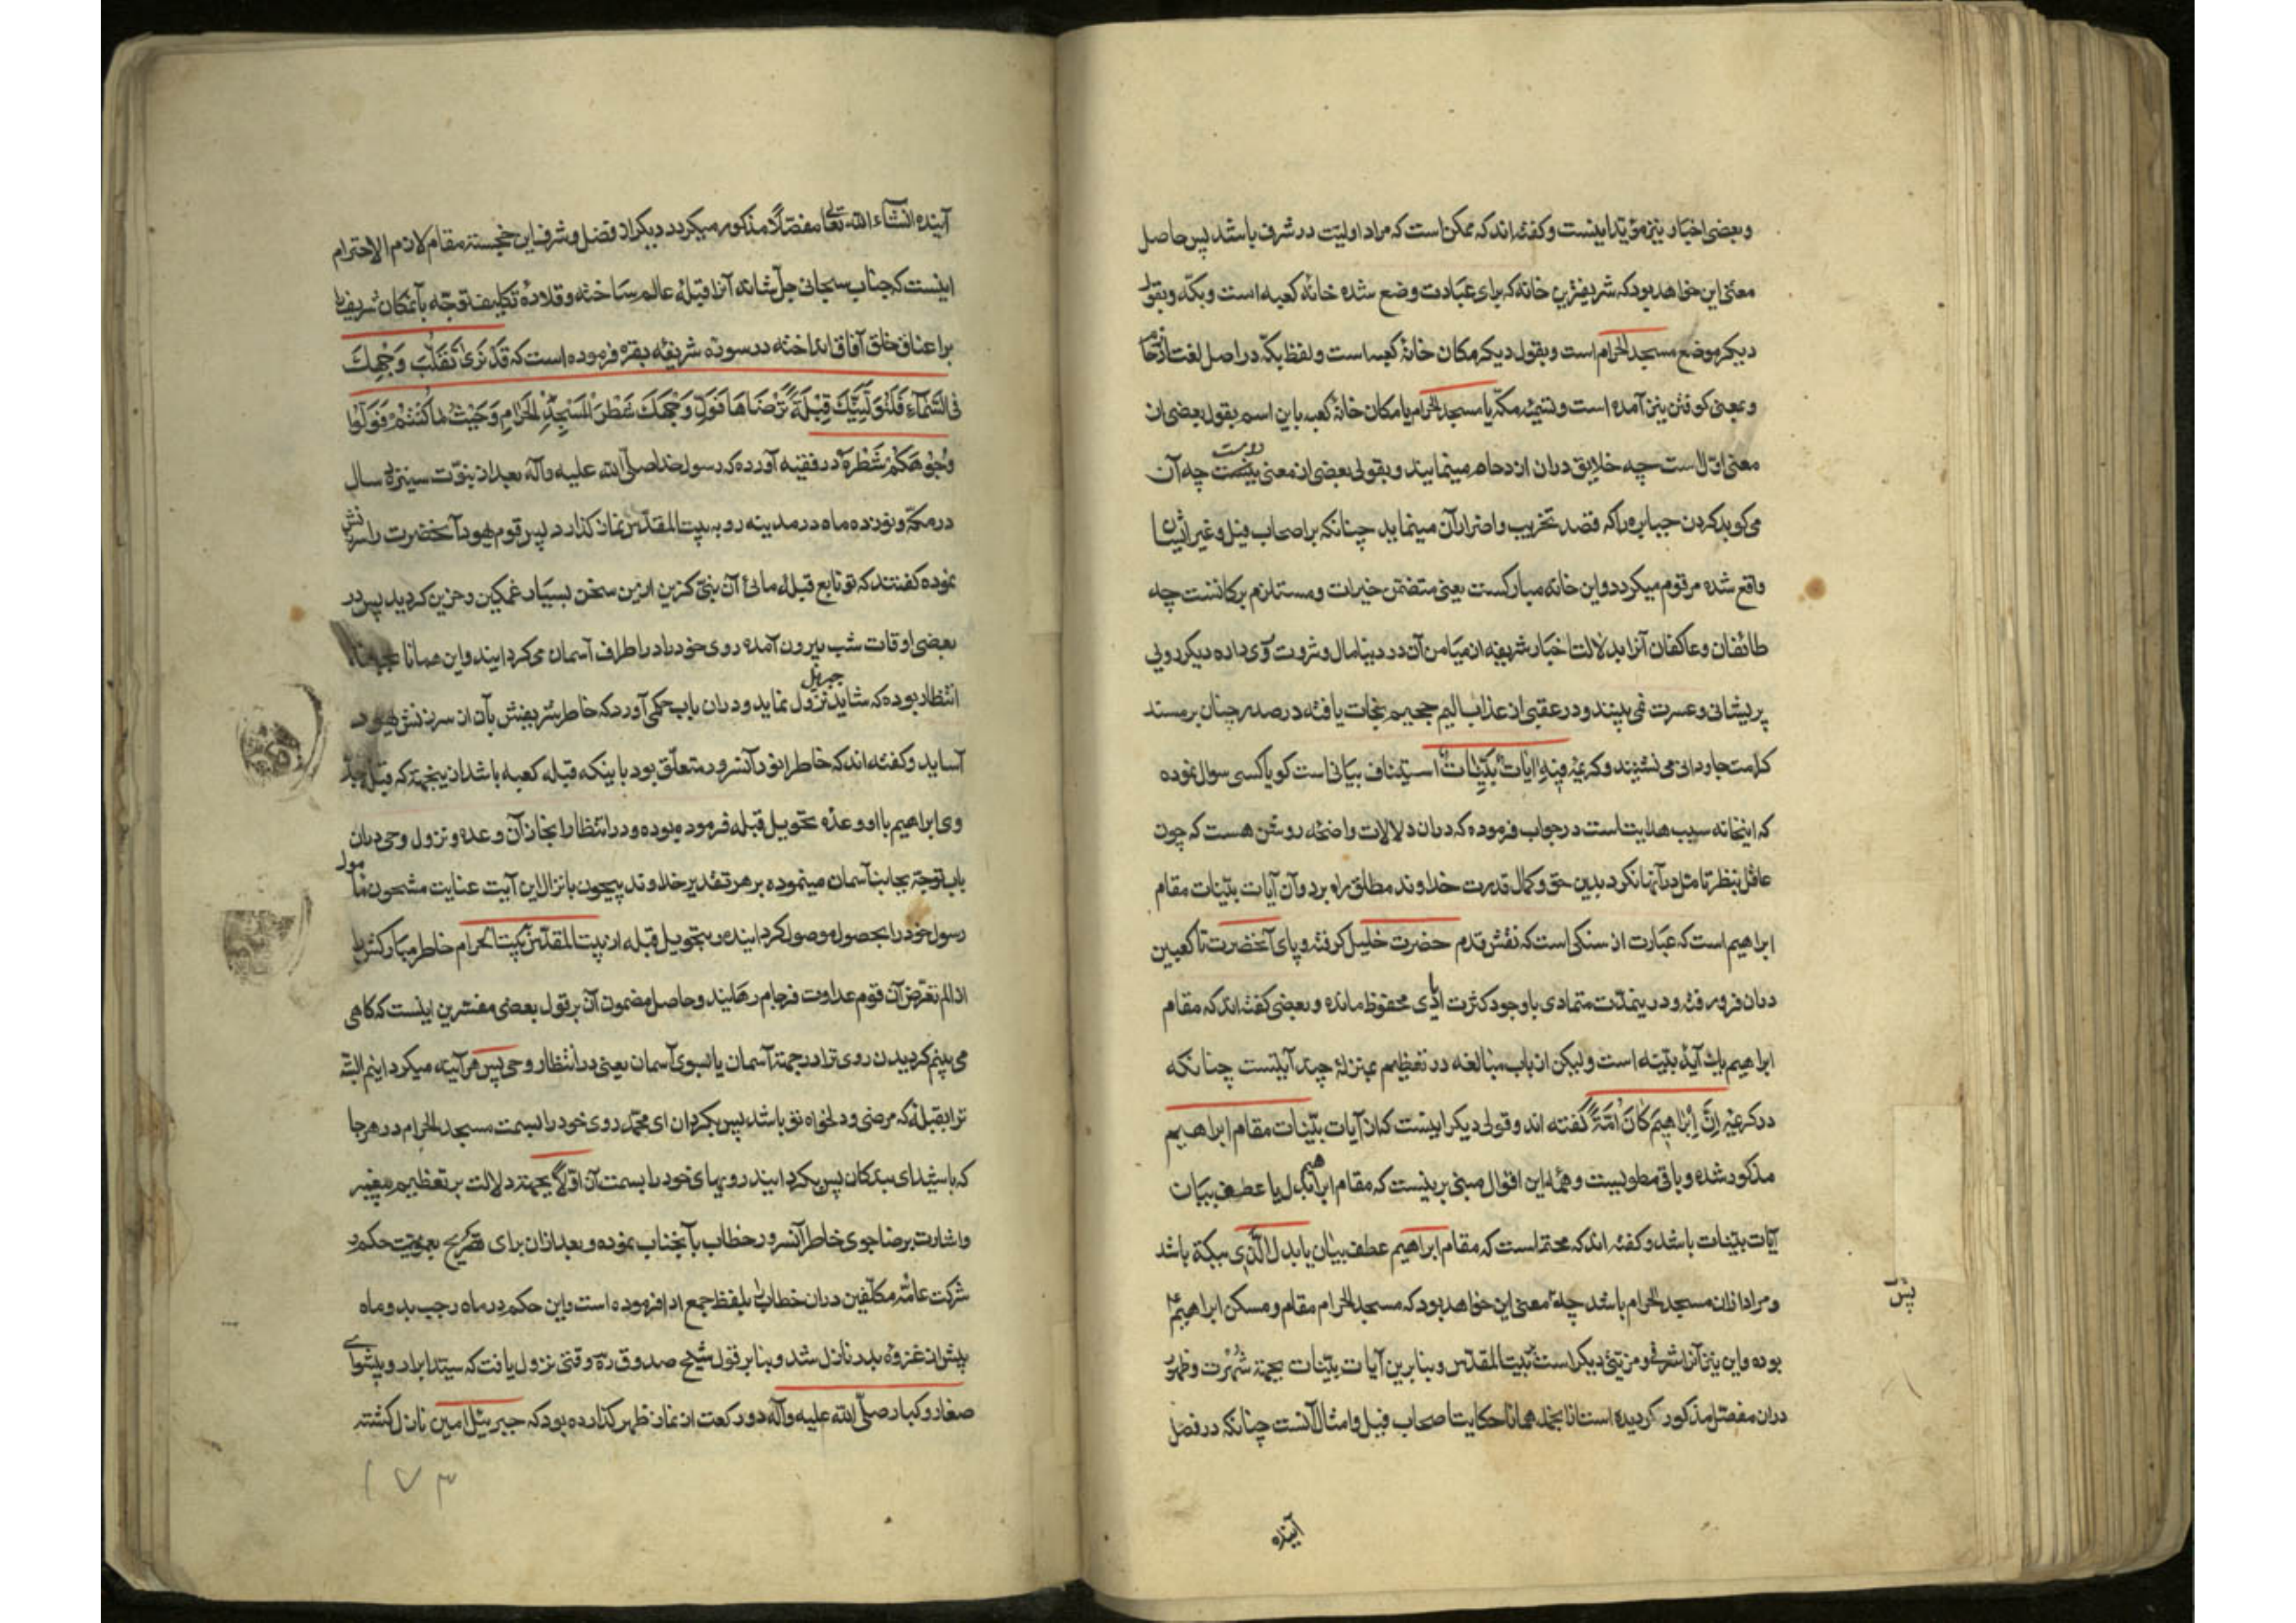 و بعضی اخبار نیز مؤید اینست و کفته اند که ممکن است که مراد اولیت در شرف باشد پس حاصل
معنی این خواهد بود که شریفترین خانه که برای عبادت وضع شده خانهٔ کعبه است و بکه و بقولی
دیکر موضع مسجد الحرام است و بقول دیکر مکان خانهٔ کعبه است و لفظ بکه در اصل لغت ازدحام
و بمعنی کوفتن نیز آمده است و تسمیهٔ مکه یا مسجد الحرام یا مکان خانهٔ کعبه باین اسم بقول بعضی از
معنی اول است چه خلایق دران ازدحام مینمایند و بقولی بعضی از معنی دویست چه آن
می کوبد کردن جبابره را که قصد تخریب و اضرار آن مینماید چنانکه بر اصحاب فیل و غیر ایشان
واقع شده مرقوم میکردد و این خانه مبارکست یعنی متضمن خیرات و مستلزم برکاتست چه
طائفان و عاکفان آنرا بدلالت اخبار شریفه از میامن آن در دنیا مال و ثروت روی داده دیکر روی
پریشانی و عسرت نمی بینند و در عقبی از عذاب الیم جحیم نجات یافته در صدر جنان بر مسند
کرامت جاودانی می نشینند و کریمهٔ فِیهِ اٰیَاتٌ بَیِّنَاتٌ استیناف بیانی است کویا کسی سوال نموده
که اینخانه سبب هدایت است در جواب فرموده که دران دلالات واضحه روشن هست که چون
عاقل بنظر تامل در آنها نکرد بدین حق و کمال قدرت خداوند مطلق راه برد و آن آیات بینات مقام
ابراهیم است که عبارت از سنکی است که نقش قدم حضرت خلیل کرفته و پای آنحضرت تا کعبین
دران فرو رفته و درینمدت متمادی با وجود کثرت اعادی محفوظ مانده و بعضی کفته اند که مقام
ابراهیم یک آیهٔ بینه است و لیکن از باب مبالغه در تعظیم بمنزلهٔ چند آیتست چنانکه
در کریمهٔ اِنَّ اِبْرٰاهِیمَ کَانَ اُمَّةً کفته اند و قولی دیکر اینست که از آیات بینات مقام ابراهیم
مذکور شده و باقی مطویست و همه این اقوال مبنی برینست که مقام ابراهیم بدل یا عطف بیان
آیات بینات باشد و کفته اند که محتمل است که مقام ابراهیم عطف بیان یا بدل للذی ببکة باشد
و مراد ازان مسجد الحرام باشد چه معنی این خواهد بود که مسجد الحرام مقام و مسکن ابراهیم
بوده و این نیز آنرا شرف و مزیتی دیکر است بر بیت المقدس و بنابرین آیات بینات بجهة شهرت و ظهور
دران مفصل مذکور کردیده است از انجمله همانا حکایت اصحاب فیل و امثال آنست چنانکه در فصل
آینده
پس
آینده انشاء الله تعالی مفصلا مذکور میکردد دیکر از فضل و شرف این خجسته مقام لازم الاحترام
اینست که جناب سبحانی جل شانه آنرا قبلهٔ عالم ساخته و قلادهٔ تکلیف توجه بآنمکان شریف را
بر اعناق خلق آفاق انداخته در سورهٔ شریفهٔ بقره فرموده است که قَدْ نَرٰی تَقَلُّبَ وَجْهِكَ
فِی السَّمَاءِ فَلَنُوَلِّیَنَّكَ قِبْلَةً تَرْضَاهَا فَوَلِّ وَجْهَكَ شَطْرَ الْمَسْجِدِ الْحَرَامِ وَحَیْثُ مَا کُنْتُمْ فَوَلُّوا
وُجُوهَکُمْ شَطْرَهُ در فقیه آورده که رسول خدا صلی الله علیه و آله بعد از نبوت سیزده سال
در مکه و نوزده ماه در مدینه رو به بیت المقدس نماز کذارد پس قوم یهود آنحضرت را سرزنش
نموده کفتند که تو تابع قبلهٔ مائی آن نبی کزین ازین سخن بسیار غمکین و حزین کردید پس در
بعضی اوقات شب بیرون آمده روی خود را در اطراف آسمان می کردانید و این همانا بجهة
انتظار بوده که شاید جبرئیل نزول نماید و دران باب حکمی آورد که خاطر شریفش بآن از سرزنش یهود
آساید و کفته اند که خاطر انور آنسرور متعلق بود باینکه قبله کعبه باشد ازینجهة که قبلهٔ جد
وی ابراهیم با او وعدهٔ تحویل قبله فرموده بوده و در انتظار انجاز آن وعده و نزول وحی دران
باب توجه بجانب آسمان مینموده بر هر تقدیر خداوند بیچون بانزال این آیت عنایت مشحون مأمول
رسول خود را بحصول موصول کردانیده و بتحویل قبله از بیت المقدس ببیت الحرام خاطر مبارکش را
از الم تعرض آن قوم عداوت فرجام رهانید و حاصل مضمون آن بر قول بعضی مفسرین اینست که کاهی
می بینم کردیدن روی ترا در جهة آسمان یا بسوی آسمان یعنی در انتظار وحی پس هرآینه میکردانیم البته
ترا بقبله که مرضی و دلخواه تو باشد پس بکردان ای محمد روی خود را بسمت مسجد الحرام در هر جا
که باشید ای بندکان پس بکردانید رویهای خود را بسمت آن اولا بجهة دلالت بر تعظیم پیغمبر
و اشارت برضا جوی خاطر آنسرور خطاب بآنجناب نموده و بعد ازان برای تصریح بعمومیت حکم و
شرکت عامهٔ مکلفین دران خطاب بلفظ جمع ادا فرموده است و این حکم در ماه رجب بدو ماه
پیش از غزوهٔ بدر نازل شد و بنابر قول شیخ صدوق ره وقتی نزول یافت که سید ابرار و پیشوای
صغار و کبار صلی الله علیه و آله دو رکعت از نماز ظهر کذارده بود که جبرئیل امین نازل کشته
۱۷۳